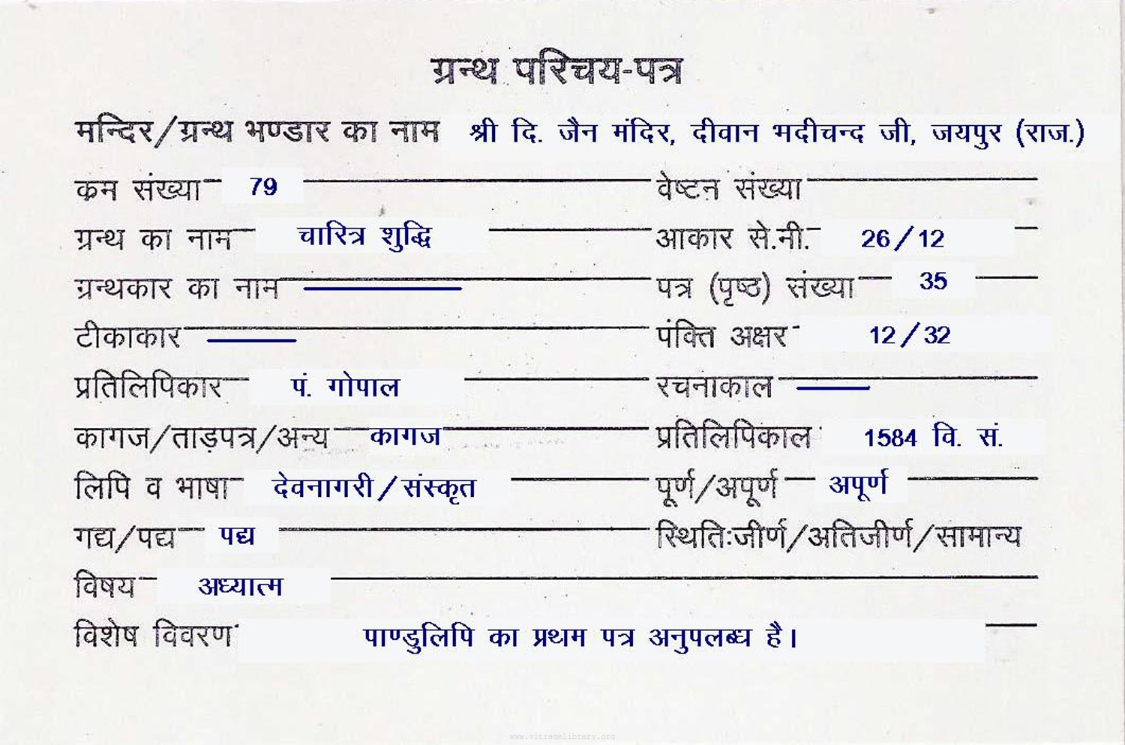 ग्रन्थ परिचय-पत्र
मन्दिर/ग्रन्थ भण्डार का नाम श्री दि. जैन मंदिर, दीवान भदीचन्द जी, जयपुर (राज.)
क्रम संख्या 79 वेष्टन संख्या
ग्रन्थ का नाम चारित्र शुद्धि आकार से.मी. 26/12
ग्रन्थकार का नाम पत्र (पृष्ठ) संख्या 35
टीकाकार पंक्ति अक्षर 12/32
प्रतिलिपिकार पं. गोपाल रचनाकाल
कागज/ताड़पत्र/अन्य कागज प्रतिलिपिकाल 1584 वि. सं.
लिपि व भाषा देवनागरी/संस्कृत पूर्ण/अपूर्ण अपूर्ण
गद्य/पद्य पद्य स्थिति:जीर्ण/अतिजीर्ण/सामान्य
विषय अध्यात्म
विशेष विवरण पाण्डुलिपि का प्रथम पत्र अनुपलब्ध है।